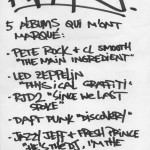 5 ALBUMS QUI M'ONT
MARQUÉ:
• PETE ROCK + CL SMOOTH
"THE MAIN INGREDIENT"
• LED ZEPPELIN
"PHYSICAL GRAFFITI"
• RJD2 "SINCE WE LAST
SPOKE"
• DAFT PUNK "DISCOVERY"
• JAZZY JEFF + FRESH PRINCE
"HE'S THE DJ, I'M THE